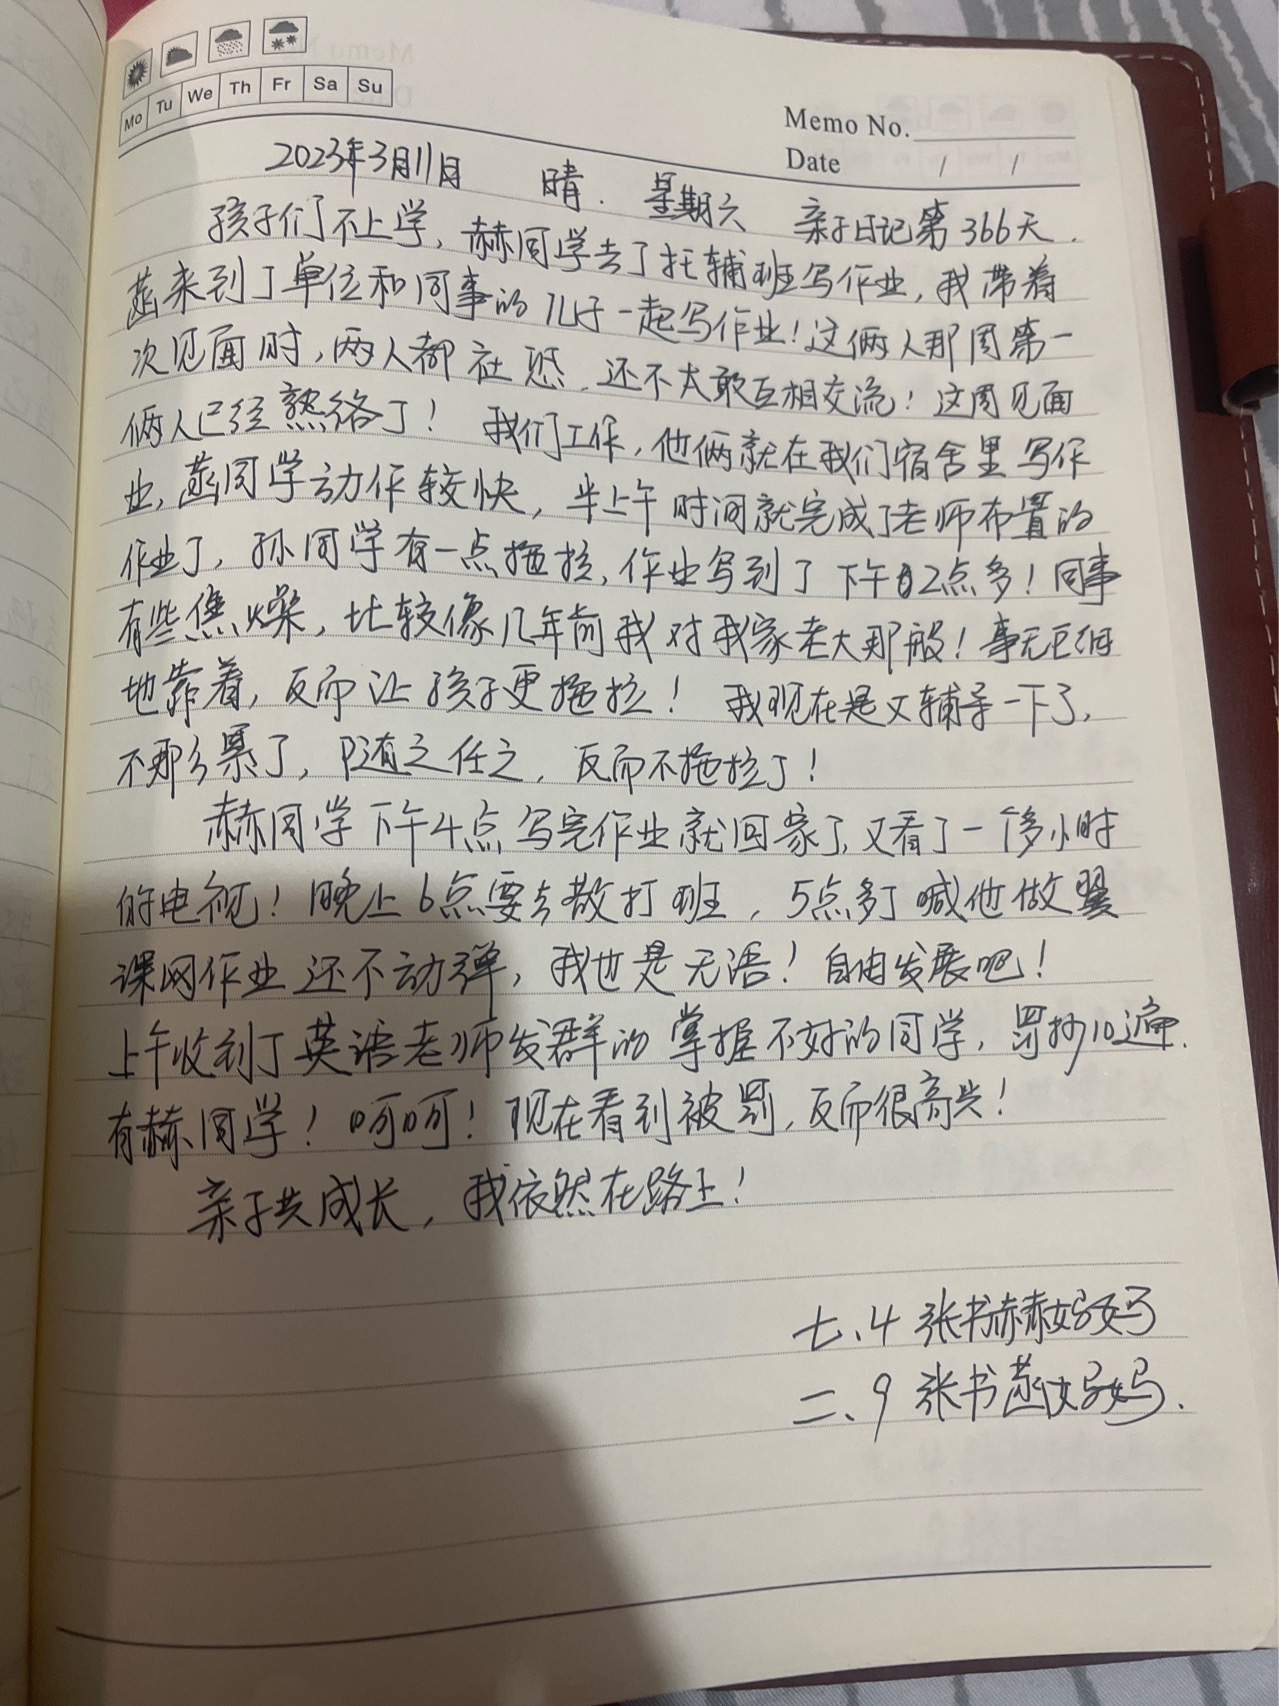 Mo Tu We Th Fr Sa Su
Memo No.
Date / /
2023年3月11日 晴. 星期六 亲子日记第366天.
孩子们不上学,赫同学去了托辅班写作业,我带着
菡来到了单位和同事的儿子一起写作业!这俩人那周第一
次见面时,两人都社恐,还不太敢互相交流!这周见面
俩人已经熟络了! 我们工作,他俩就在我们宿舍里写作
业,菡同学动作较快,半上午时间就完成了老师布置的
作业了,孙同学有一点拖拉,作业写到了下午2点多!同事
有些焦燥,比较像几年前我对我家老大那般!事无巨细
地靠着,反而让孩子更拖拉! 我现在是又辅导一下了,
不那么累了,随之任之,反而不拖拉了!
赫同学下午4点写完作业就回家了,又看了一个多小时
的电视!晚上6点要去散打班,5点多了喊他做翼
课网作业还不动弹,我也是无语!自由发展吧!
上午收到了英语老师发群的掌握不好的同学,罚抄10遍.
有赫同学!呵呵!现在看到被罚,反而很高兴!
亲子共成长,我依然在路上!
七、4 张书赫妈妈
二、9 张书菡妈妈.